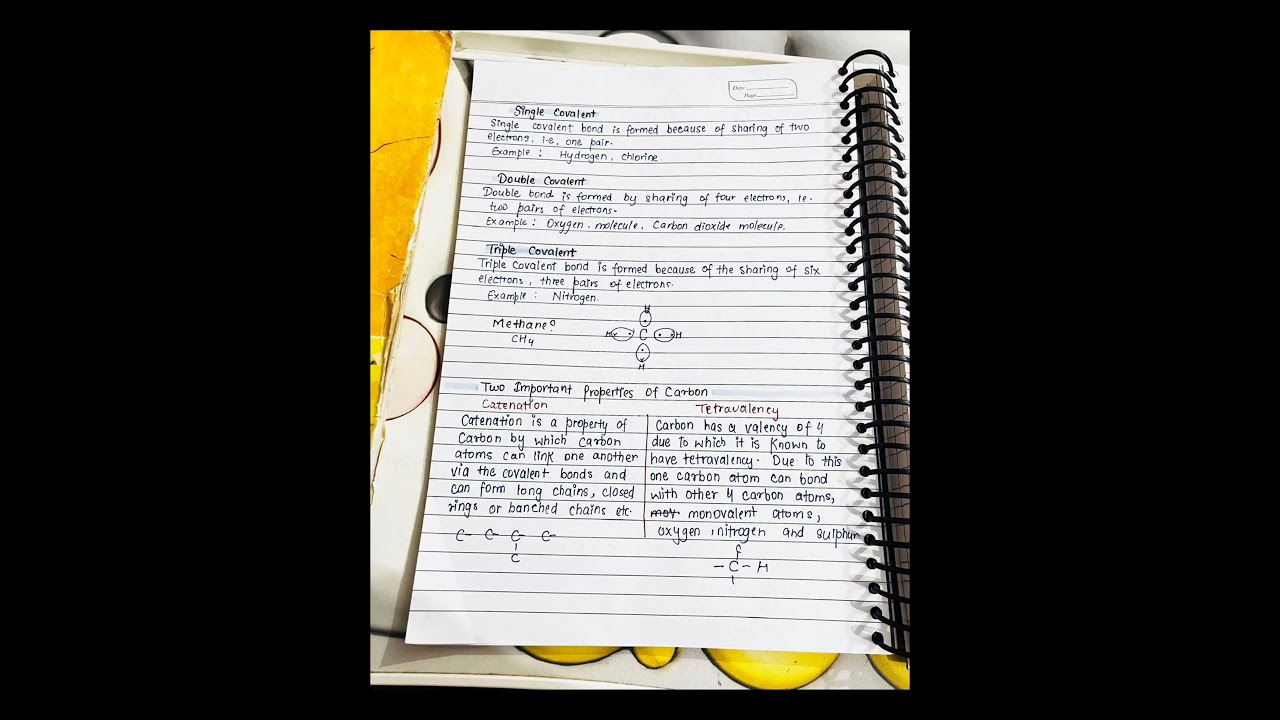 Date
Page
Single Covalent
Single covalent bond is formed because of sharing of two
electrons, i.e, one pair.
Example : Hydrogen, chlorine.
Double Covalent
Double bond is formed by sharing of four electrons, ie.
two pairs of electrons.
Example : Oxygen molecule, Carbon dioxide molecule.
Triple Covalent
Triple covalent bond is formed because of the sharing of six
electrons, three pairs of electrons.
Example : Nitrogen.
H
Methane:
H C H
CH4
H
Two Important Properties of Carbon
Catenation
Catenation is a property of
Carbon by which carbon
atoms can link one another
via the covalent bonds and
can form long chains, closed
rings or banched chains etc.
C- C- C- C-
C
Tetravalency
Carbon has a valency of 4
due to which it is known to
have tetravalency. Due to this
one carbon atom can bond
with other 4 carbon atoms,
monovalent atoms,
oxygen, nitrogen and sulphur
- C - H